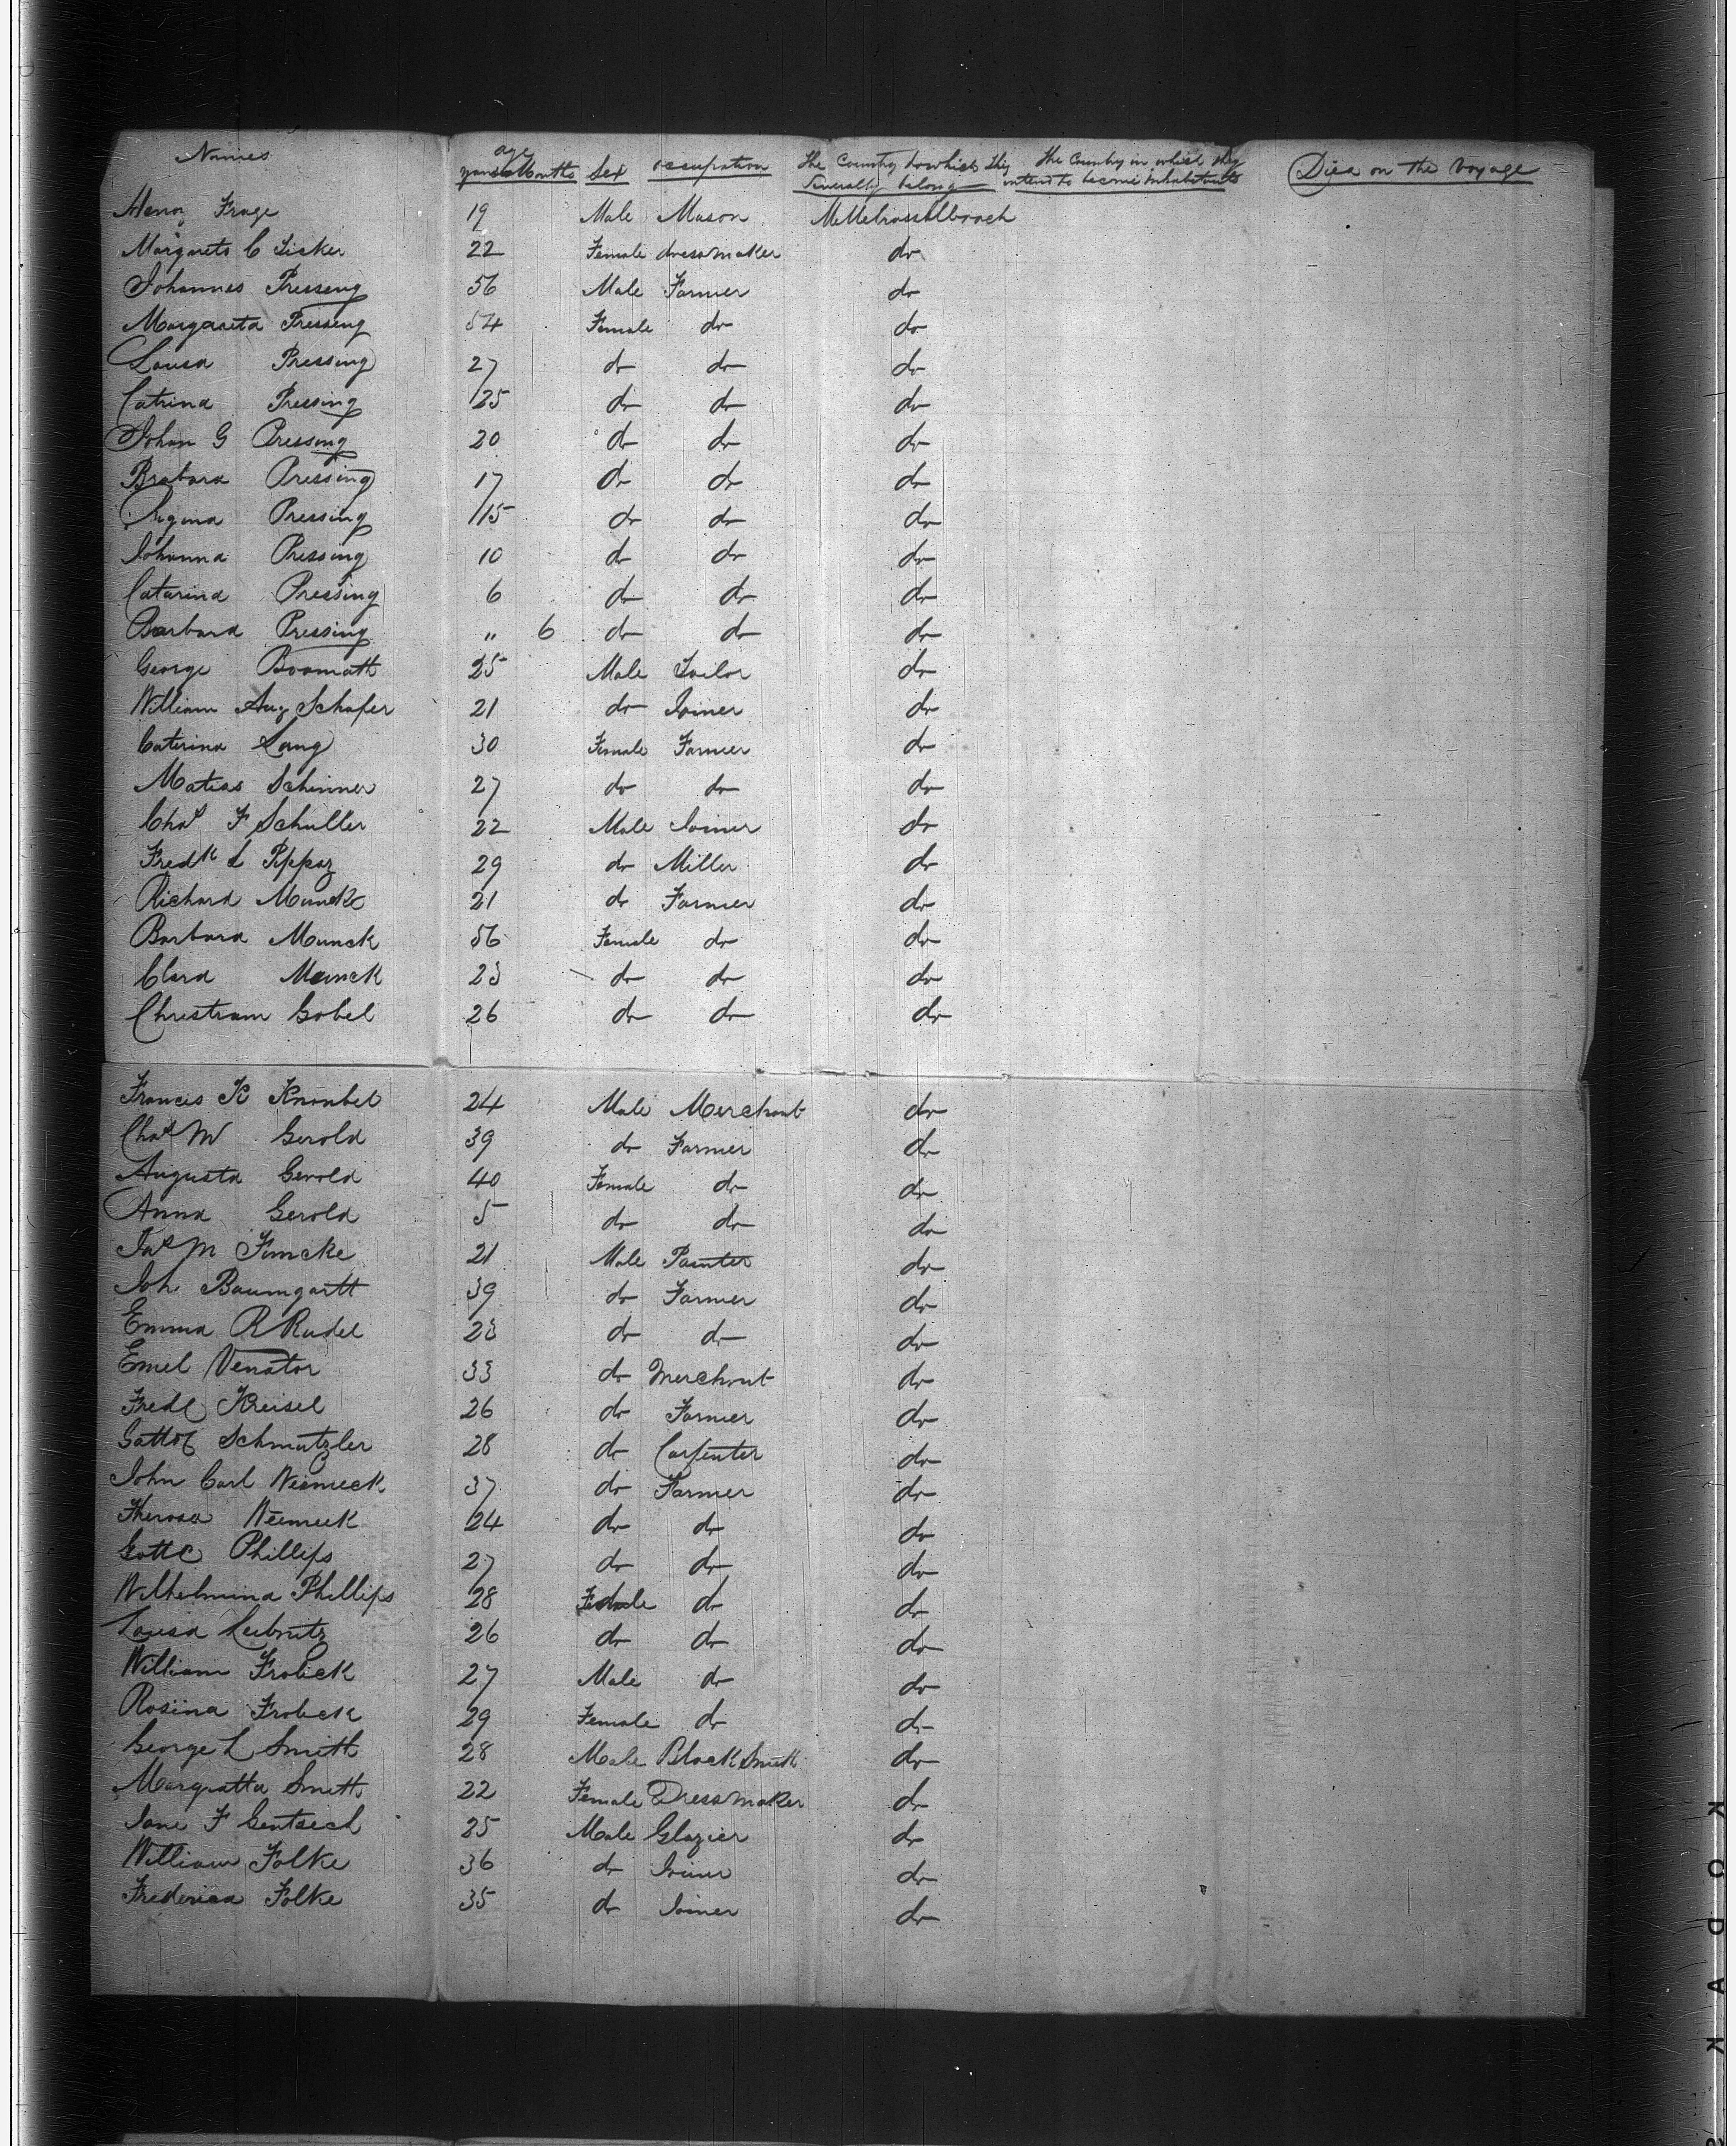 Names age years Months Sex occupation The Country to which they Severally belong The Country in which they intend to become inhabitants Died on the Voyage
Henry Frage 19 Male Mason
Margareta C Ticker 22 Female dressmaker do
Johannes Presseng 56 Male Farmer do
Margareta Presseng 54 Female do do
Lousa Pressing 27 do do do
Catrina Pressing 25 do do do
Johan G Pressing 20 do do do
Brabara Pressing 17 do do do
Rigina Pressing 15 do do do
Johanna Pressing 10 do do do
Catarina Pressing 6 do do do
Barbara Pressing " 6 do do do
George Boomath 25 Male Tailor do
William Aug Schafer 21 do Joiner do
Caterina Lang 30 Female Farmer do
Matias Schinner 27 do do do
Chas F Schuller 22 Male Joiner do
Fredk L 29 do Miller do
Richard Munck 21 do Farmer do
Barbara Munck 56 Female do do
Clara Munck 23 do do do
Christiam Gobel 26 do do do
Francis K Knoubel 24 Male Merchant do
Chas W Gerold 39 do Farmer do
Augusta Gerold 40 Female do do
Anna Gerold 5 do do do
Jas M Fimcke 21 Male Painter do
Joh Baumgartt 39 do Farmer do
Emma R Rudel 23 do do do
Emel Venator 33 do Merchant do
Fredk Kreisel 26 do Farmer do
Gattob Schmutzler 28 do Carpenter do
John Carl Niemeck 37 do Farmer do
Therosa Niemeck 24 do do do
Gottc Phillips 27 do do do
Wilhelmina Phillips 28 Female do do
Lousa Leibnitz 26 do do do
William Frobeck 27 Male do do
Rosina Frobeck 29 Female do do
George L Smith 28 Male BlackSmith do
Margratta Smith 22 Female Dressmaker do
Jane F Gentsech 25 Male Glazier do
William Folke 36 do Joiner do
Frederica Folke 35 do Joiner do
KODAK